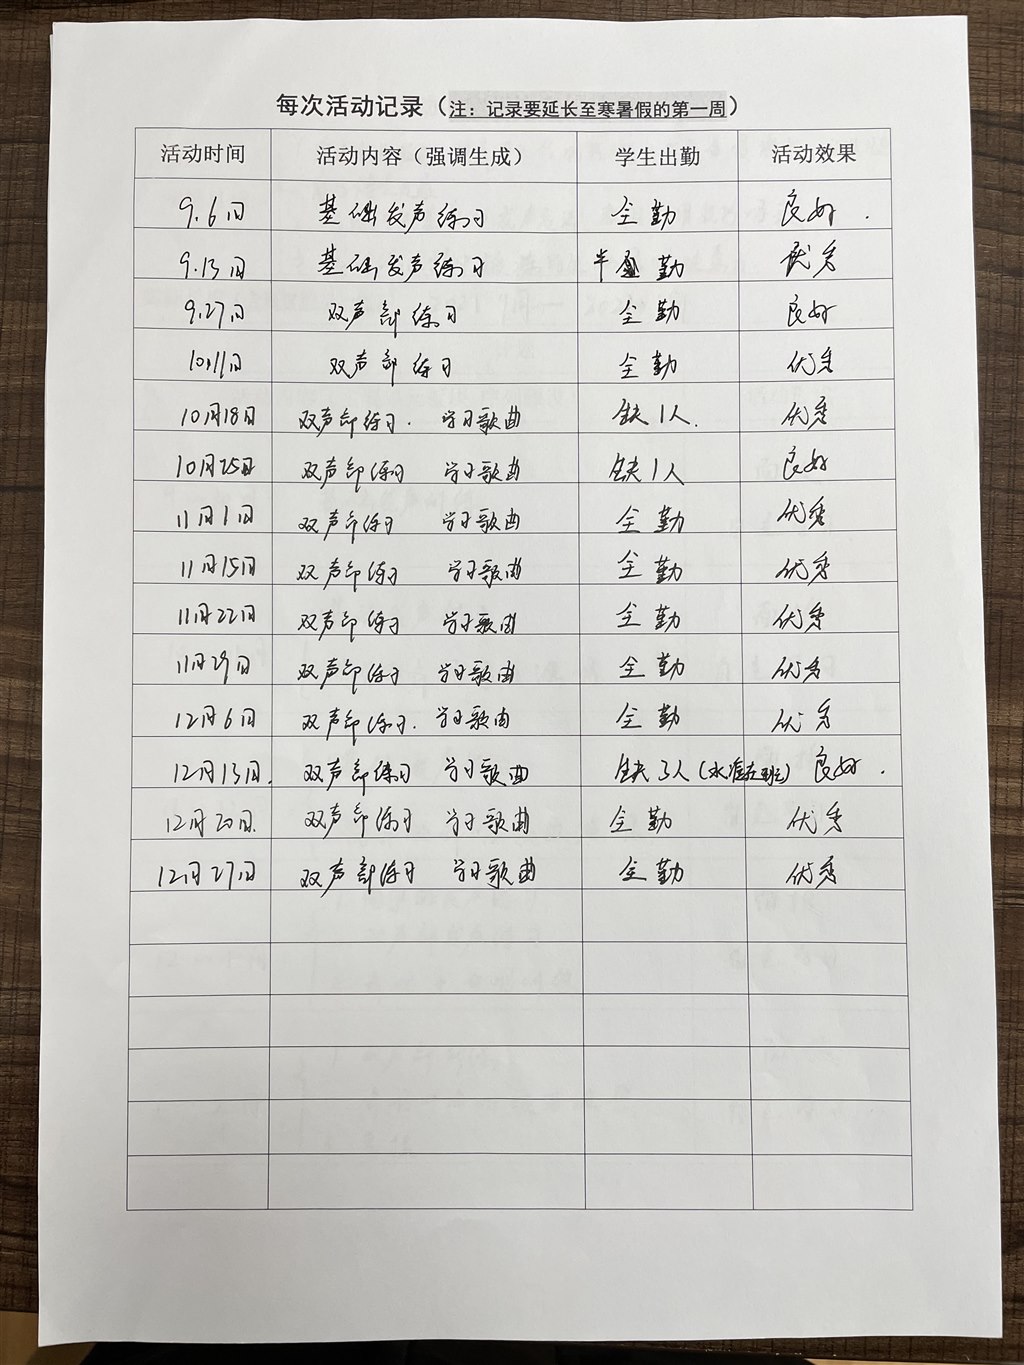 每次活动记录（注：记录要延长至寒暑假的第一周）
活动时间 活动内容（强调生成） 学生出勤 活动效果
9.6日 基础发声练习 全勤 良好.
9.13日 基础发声练习 勤 优秀
9.27日 双声部练习 全勤 良好
10.11日 双声部练习 全勤 优秀
10月18日 双声部练习. 学习歌曲 缺1人. 优秀
10月25日 双声部练习 学习歌曲 缺1人 良好
11月1日 双声部练习 学习歌曲 全勤 优秀
11月15日 双声部练习 学习歌曲 全勤 优秀
11月22日 双声部练习 学习歌曲 全勤 优秀
11月29日 双声部练习 学习歌曲 全勤 优秀
12月6日 双声部练习. 学习歌曲 全勤 优秀
12月13日. 双声部练习 学习歌曲 缺3人 良好.
12月20日. 双声部练习 学习歌曲 全勤 优秀
12月27日 双声部练习 学习歌曲 全勤 优秀